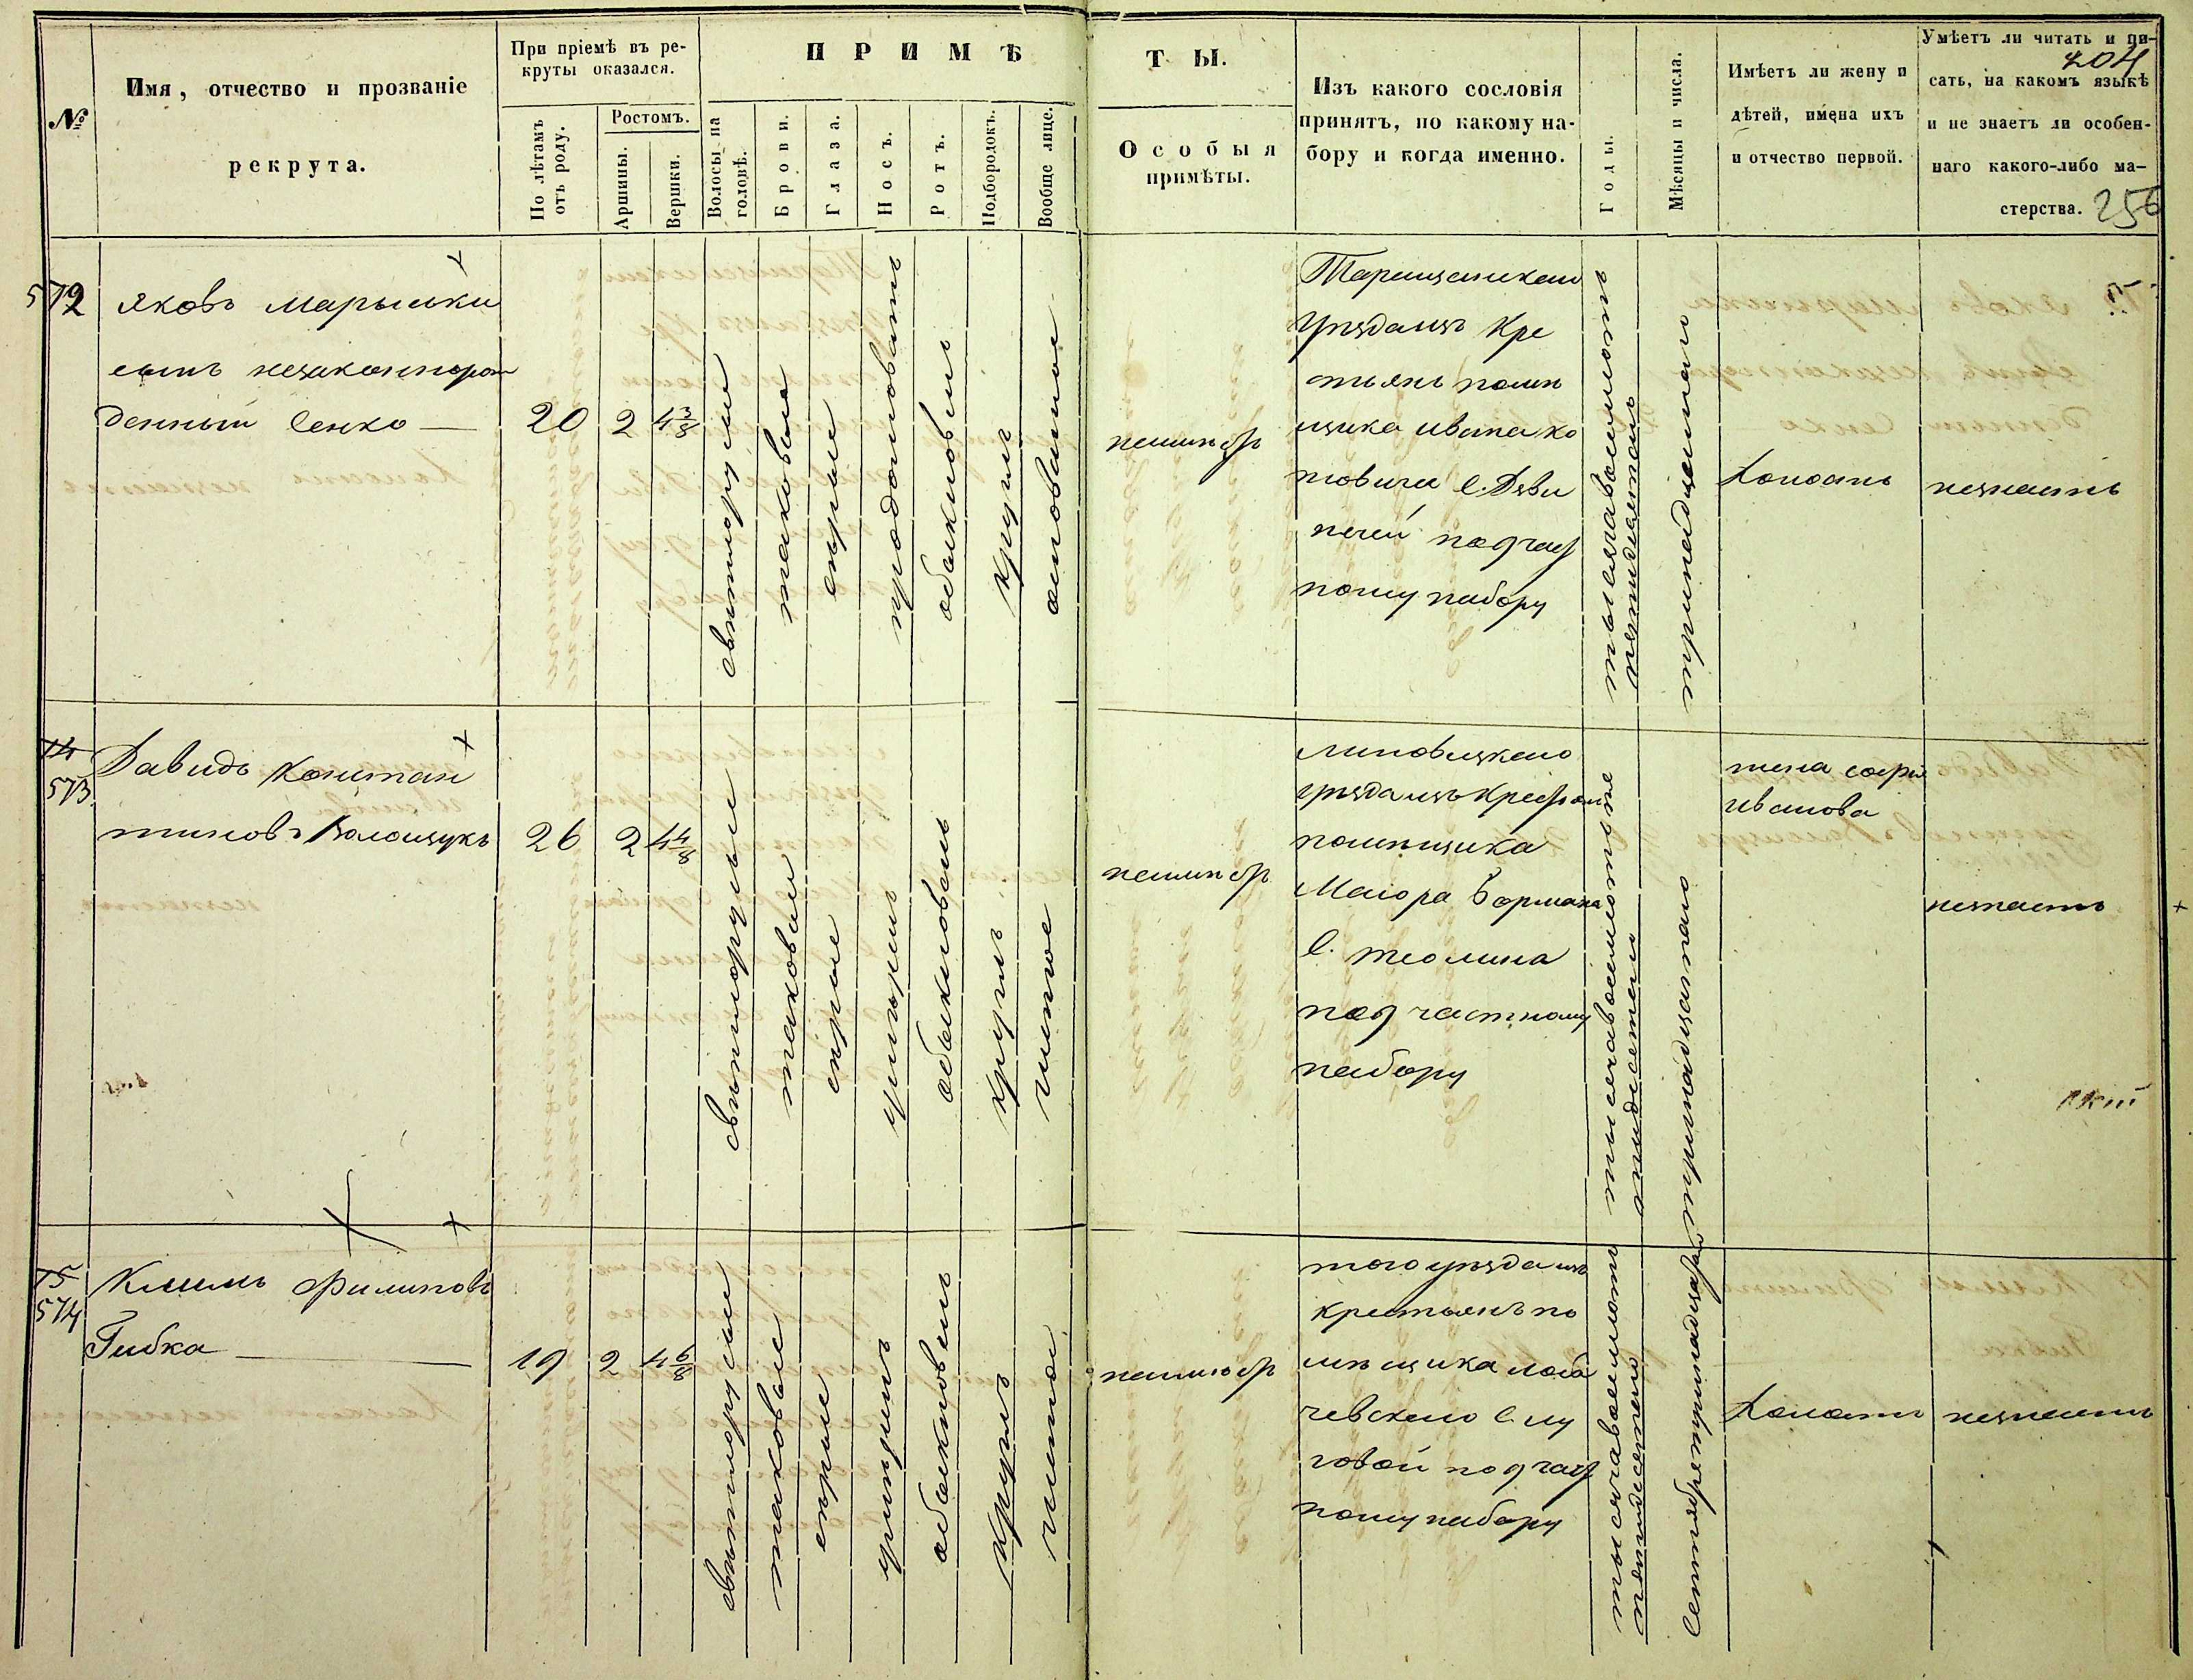 №
Имя, отчество и прозваніе
рекрута.
При пріемѣ въ ре-
круты оказался.
По лѣтамъ
отъ роду.
Ростомъ.
Аршины.
Вершки.
ПРИМѢ
Волосы на
головѣ.
Брови.
Глаза.
Носъ.
Ротъ.
Подбородокъ.
Вообще лице.
ТЫ.
Особыя
примѣты.
Изъ какого сословія
принятъ, по какому на-
бору и когда именно.
Годы.
Мѣсяцы и числа.
Имѣетъ ли жену и
дѣтей, имена ихъ
и отчество первой.
Умѣетъ ли читать и пи-
204
сать, на какомъ языкѣ
и не знаетъ ли особен-
наго какого-либо ма-
стерства. 256
572
Яковъ Марышки
сынъ незаконнорож
денный Сенко
20
2
4 3/8
свѣтлорусыи
таковыя
сѣрые
продолговатъ
обыкновенъ
круглъ
неимѣетъ
Таращанскаго
уѣзда изъ кре
стьянъ помѣ
щика Ивана
с. Дзви
нячей под част
ному набору
тысяча восемьсотъ
пятидесятаго
тринадцатаго
Холостъ
незнаетъ
14
573
Давидъ Констан
тиновъ Волощукъ
26
2
4 4/8
свѣтлорусыи
таковыи
сѣрые
умѣренъ
обыкновенъ
круглъ
чистое
неимѣетъ
Липовецкаго
уѣзда изъ крестьян
помѣщика
Маіора Бормана
с. Теолина
под частному
набору
тысяча восемьсотъ
пятидесятаго
тринадцатаго
жена Софія
Иванова
незнаетъ
15
574
Климъ Филиповъ
Гибка
19
2
4 6/8
свѣтлорусыи
таковыи
сѣрые
умѣренъ
обыкновенъ
круглъ
чистое
неимѣетъ
того уѣзда изъ
крестьянъ по
мѣщика Лоба
чевскаго с. Лу
говой под част
ному набору
тысяча восемьсотъ
пятидесятаго
Сентября тринадцатаго
Холостъ
незнаетъ